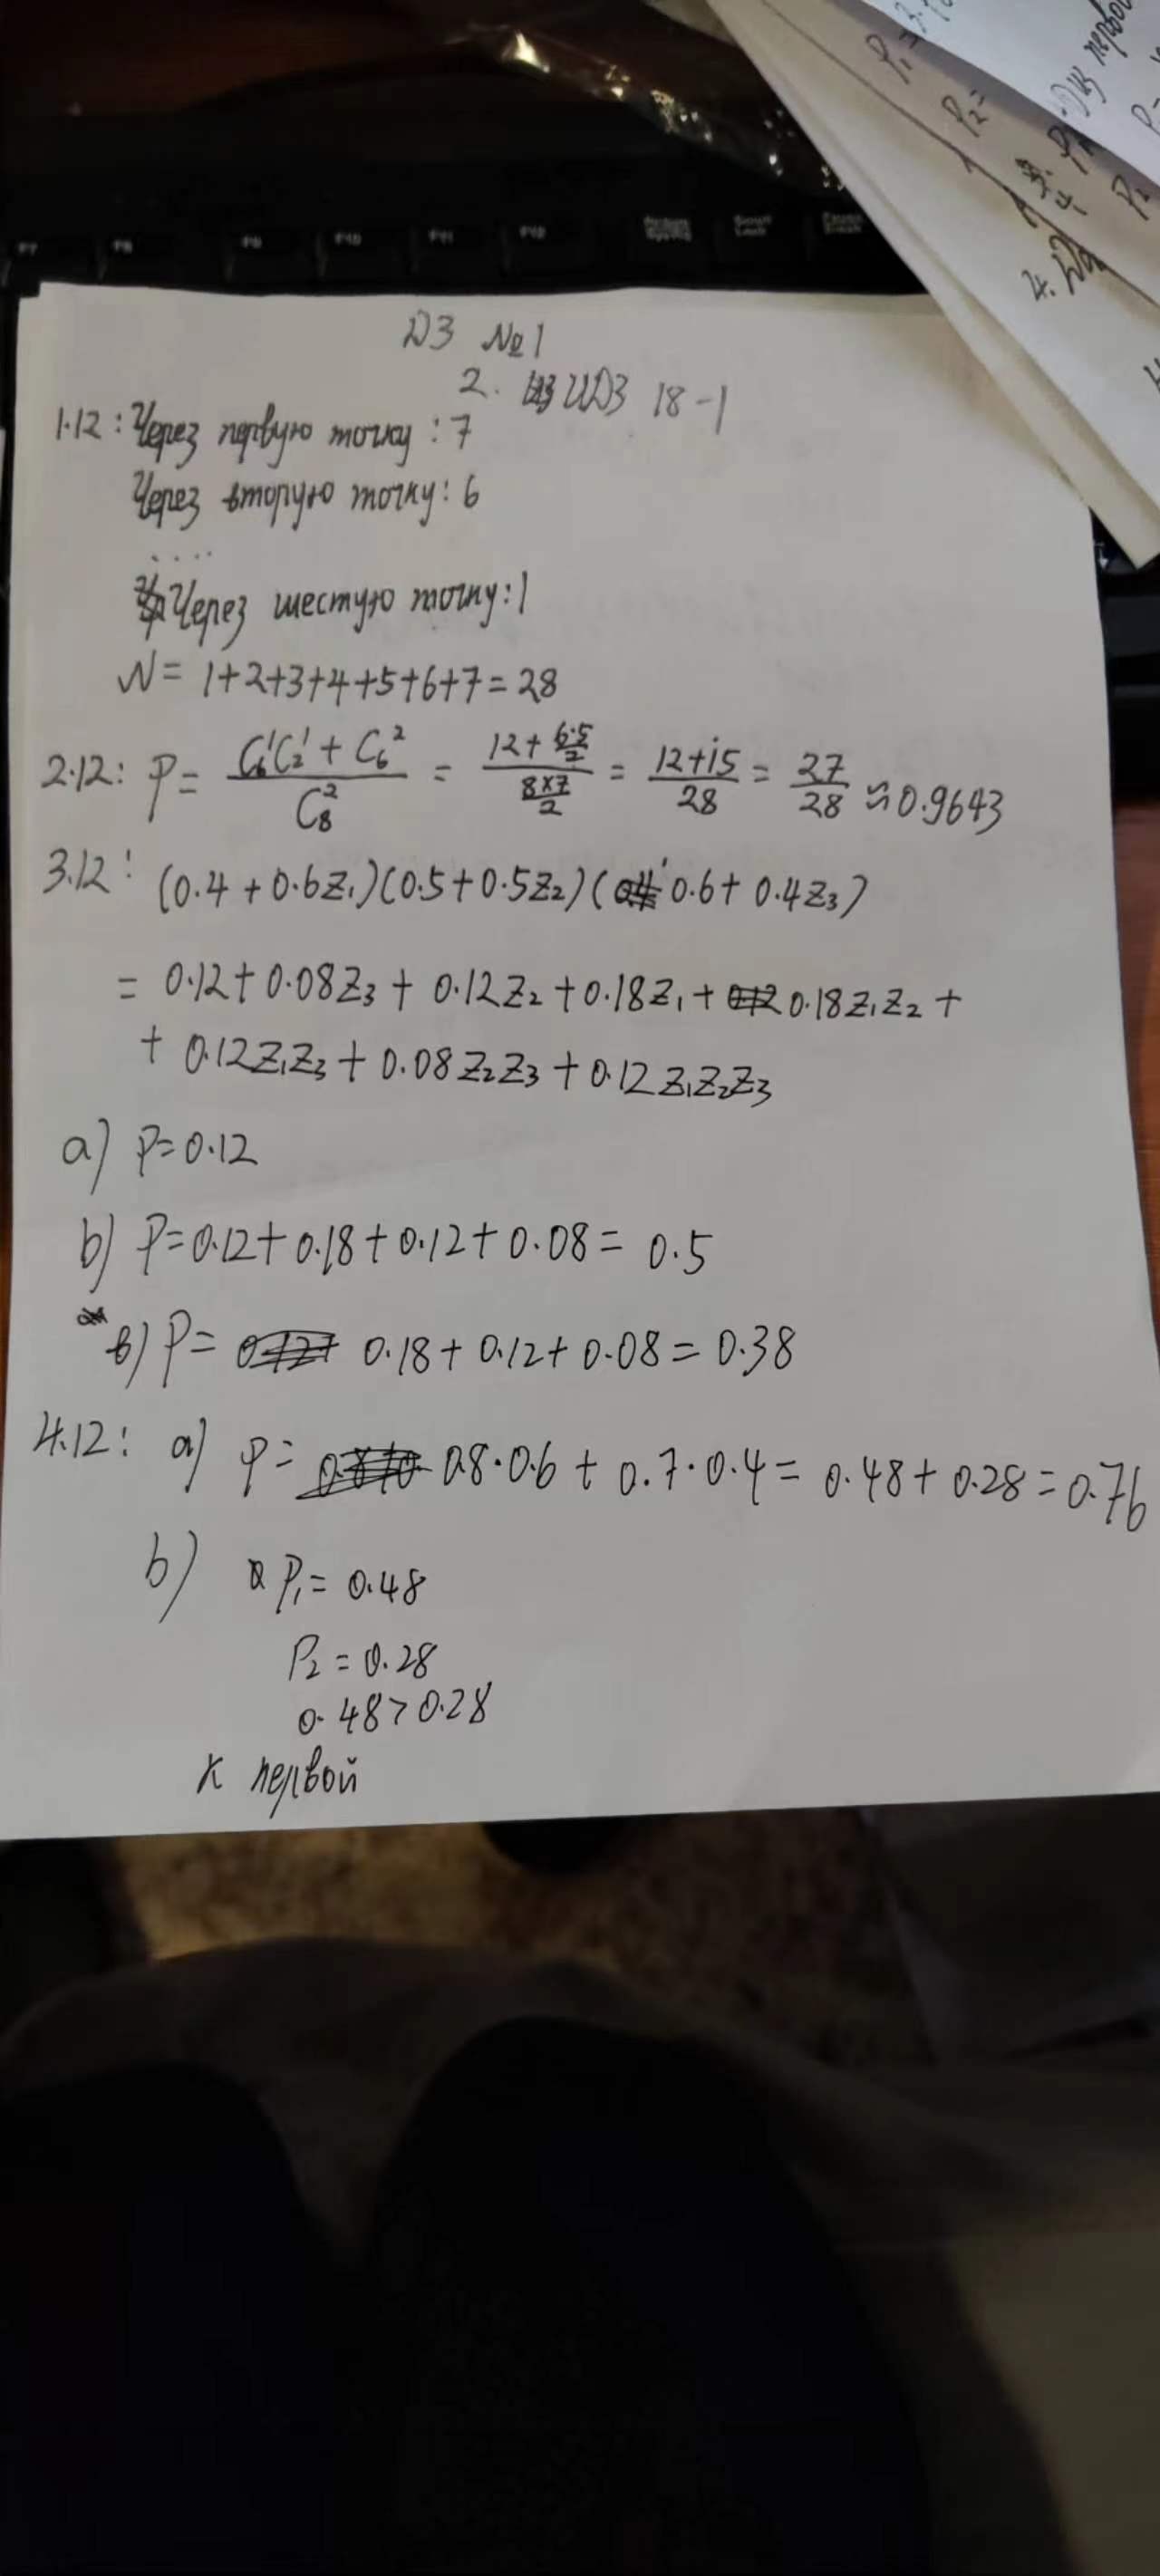 ДЗ №1
2. ИДЗ 18-1
1.12: Через первую точку: 7
Через вторую точку: 6
....
Через шестую точку: 1
N = 1+2+3+4+5+6+7=28
2.12: P = (C₆¹C₂¹ + C₆²)/C₈² = (12 + 6·5/2)/(8×7/2) = (12+15)/28 = 27/28 ≈ 0.9643
3.12: (0.4 + 0.6z₁)(0.5+0.5z₂)(0.6+ 0.4z₃)
= 0.12+0.08z₃ + 0.12z₂ + 0.18z₁ + 0.18z₁z₂ +
+ 0.12z₁z₃ + 0.08z₂z₃ + 0.12z₁z₂z₃
a) P=0.12
b) P=0.12+0.18+0.12+0.08= 0.5
в) P= 0.18+0.12+0.08=0.38
4.12: a) P= 0.8·0.6 + 0.7·0.4= 0.48+0.28=0.76
b) P₁= 0.48
P₂=0.28
0.48>0.28
к первой
P₁=
P₂=
4.
F7 F8 F9 F10 F11 F12